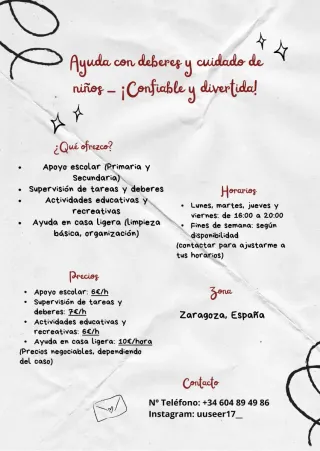 Ayuda con deberes y cuidado de
niños – ¡Confiable y divertida!
¿Qué ofrezco?
• Apoyo escolar (Primaria y
Secundaria)
• Supervisión de tareas y deberes
• Actividades educativas y
recreativas
• Ayuda en casa ligera (limpieza
básica, organización)
Horarios
• Lunes, martes, jueves y
viernes: de 16:00 a 20:00
• Fines de semana: según
disponibilidad
(contactar para ajustarme a
tus horarios)
Precios
• Apoyo escolar: 6€/h
• Supervisión de tareas y
deberes: 7€/h
• Actividades educativas y
recreativas: 6€/h
• Ayuda en casa ligera: 10€/hora
(Precios negociables, dependiendo
del caso)
Zona
Zaragoza, España
Contacto
Nº Teléfono: +34 604 89 49 86
Instagram: uuseer17__